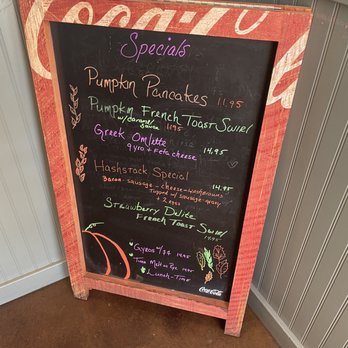 Coca-Cola
Specials
Pumpkin Pancakes 11.95
Pumpkin French Toast Swirl
w/caramel
sauce 11.95
Greek Omlette 14.95
gyro + Feta cheese
Hashstack Special
Bacon - Sausage - cheese - 14.95
Topped w/ sausage gravy
+ 2 eggs
Strawberry Delite
French Toast Swirl
14.95
Gyros
Tuna Melt on Rye
Lunch-Time
Coca-Cola